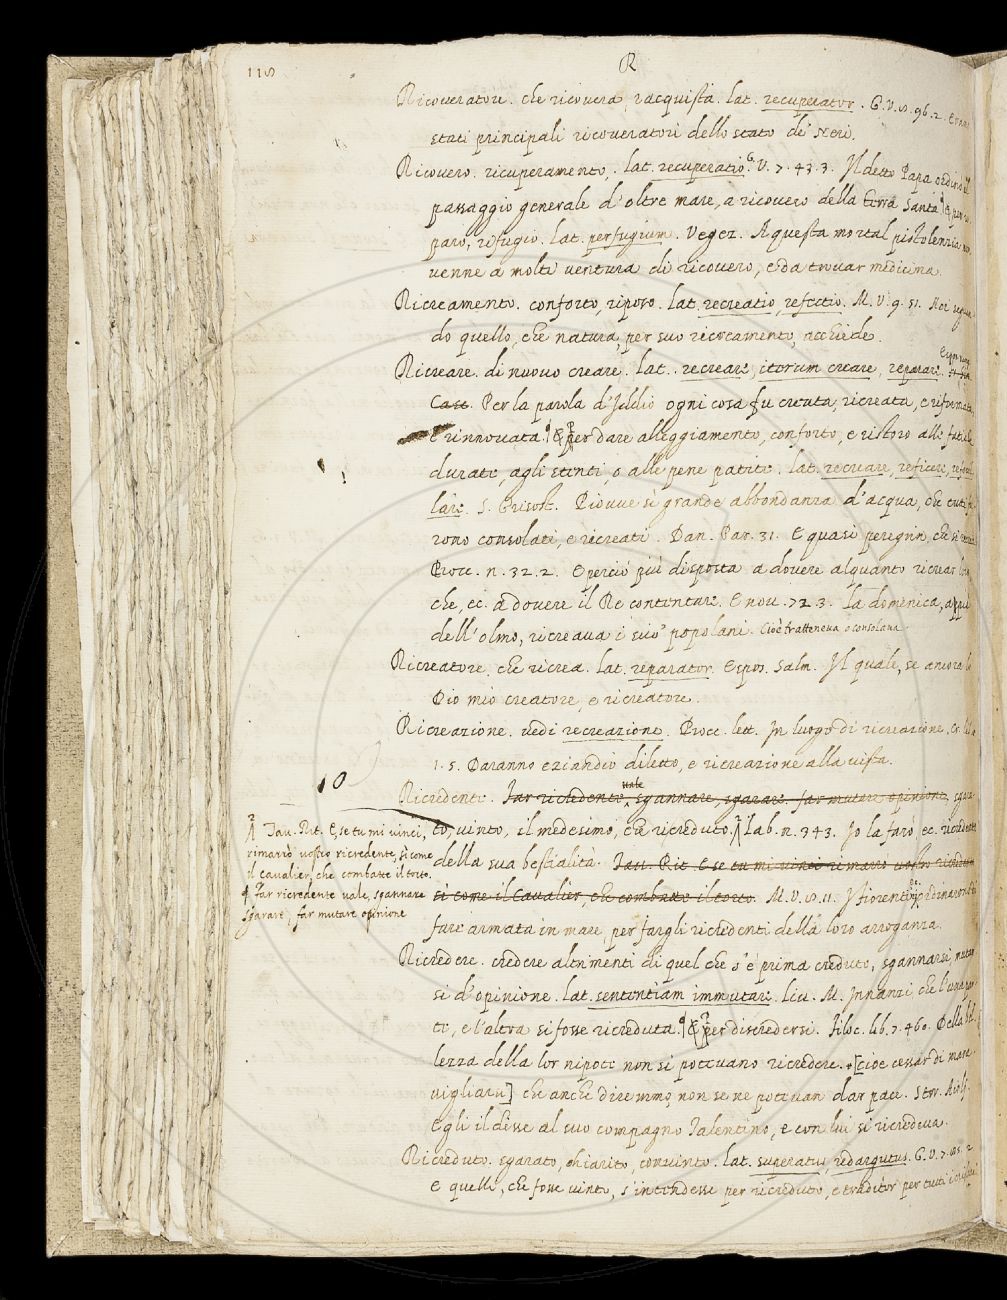 118
R
Ricoveratore. che ricovera, racquista. lat. recuperator. G. V. 8. 96. 2.
stati principali ricoveratori dello stato de' Neri.
Ricovero. ricuperamento, lat. recuperatio. G. V. 7. 43. 3. Il detto Papa ordinò il
passaggio generale d'oltre mare, a ricovero della terra Santa. & per
paro, refugio. lat. perfugium. Vegez. A questa mortal pistolenzia
venne a molti ventura di ricovero, e da trovar medicina.
Ricreamento. conforto, riposo. lat. recreatio, refectio. M. V. 9. 51.
do quello, che natura, per suo ricreamento, acchiede.
Ricreare. di nuovo creare. lat. recreare, iterum creare, reparare.
Per la parola d'Iddio ogni cosa fu creata, ricreata, e riformata,
e rinnovata. & per dare alleggiamento, conforto, e ristoro alle fatiche
durate, agli stenti, o alle pene patite. lat. recreare, reficere,
lare. S. Grisost. Piovve sì grande abbondanza d'acqua, che tutti
rono consolati, e ricreati. Dan. Par. 31. E quasi peregrin, che si
Bocc. n. 32. 2. E perciò più disposta a dovere alquanto ricrear
che, ec. a dovere il Re contentare. E nov. 72. 3. la domenica, appiè
dell'olmo, ricreava i suoi popolani. Cioè tratteneva o consolava
Ricreatore. che ricrea. lat. reparator. Espos. Salm. Il quale, se ancora
Dio mio creatore, e ricreatore.
Ricreazione. vedi recreazione. Bocc. lett. In luogo di ricreazione. Cr.
1. 5. Daranno eziandio diletto, e ricreazione alla vista.
10
Ricredente. far ricredente, vale sgannare, sgarare. far mutare opinione
to, vinto, il medesimo, che ricreduto. Lab. n. 343. Io la farò, ec. ricredente
della sua bestialità. Tav. Rit. E se tu mi vinci rimarrò vostro ricredente
sì come il Cavalier, che combatte il torto. M. V. 8. 11. I fiorentini
fare armata in mare per fargli ricredenti della loro arroganza.
Tav. Rit. E, se tu mi vinci,
rimarrò vostro ricredente, sì come
il cavalier, che combatte il torto.
& Far ricredente vale, sgannare
sgarare, far mutare opinione
Ricredere. credere altrimenti di quel che s'è prima creduto, sgannarsi, mutar
si d'opinione. lat. sententiam immutare. Liv. M. Innanzi che l'una
te, e l'altra si fosse ricreduta. & per discredersi. Filoc. lib. 7. 460. Della bel
lezza della lor nipote non si potevano ricredere. [cioè cessar di mara
vigliarsi] che anche diremmo, non se ne potevan dar pace. Stor. Aiolf.
Egli il disse al suo compagno Talentino, e con lui si ricredeva.
Ricreduto. sgarato, chiarito, convinto. lat. superatus, redargutus. G. V. 7. 85. 2
e quelli, che fosse vinto, s'intendesse per ricreduto, e traditor per tutti